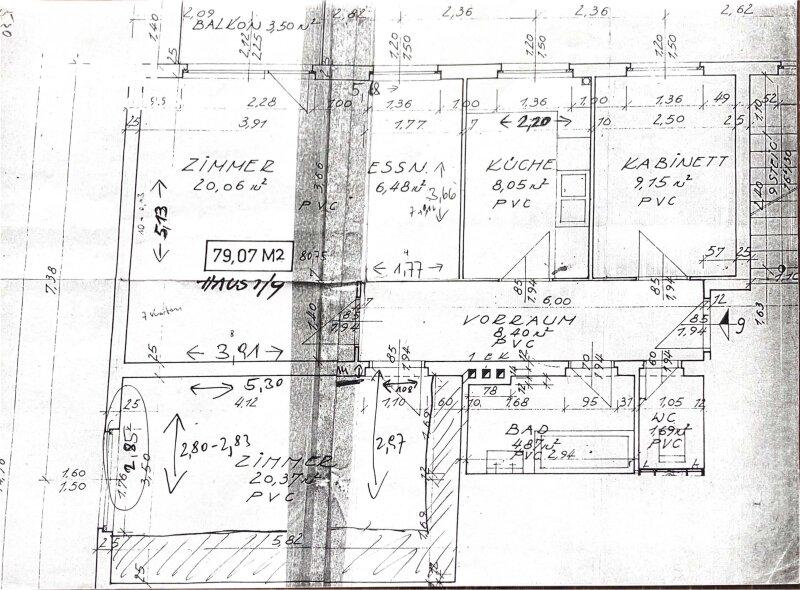 2,09
2,82
2,36
2,36
2,62
BALKON 3,50 m²
1,40
25
2,12
2,25
1,20
1,50
1,20
1,50
1,20
1,50
5,18
2,28
1,00
1,36
1,00
1,36
1,00
1,36
49
52
25
3,91
1,77
7
2,20
10
2,50
25
ZIMMER
20,06 m²
PVC
3,66
ESSN.
6,48 m²
3,66
KÜCHE
8,05 m²
PVC
KABINETT
9,15 m²
PVC
5,13
79,07 M2
HAUS 1/9
8075
1,77
57
25
7,38
85
1,94
6,00
85
1,94
VORRAUM
8,40 m²
PVC
7
85
1,94
12
85
1,94
9
1,63
25
3,91
85
1,94
70
1,94
60
1,94
5,30
108
78
25
4,12
1,10
60
10
1,68
95
31
7
1,05
12
2,85
3,50
1,76
2,80-2,83
ZIMMER
20,37 m²
PVC
2,87
1,69
12
1,69
BAD
4,87 m²
PVC 2,94
WC
1,69 m²
PVC
1,60
1,50
25
5,82
25